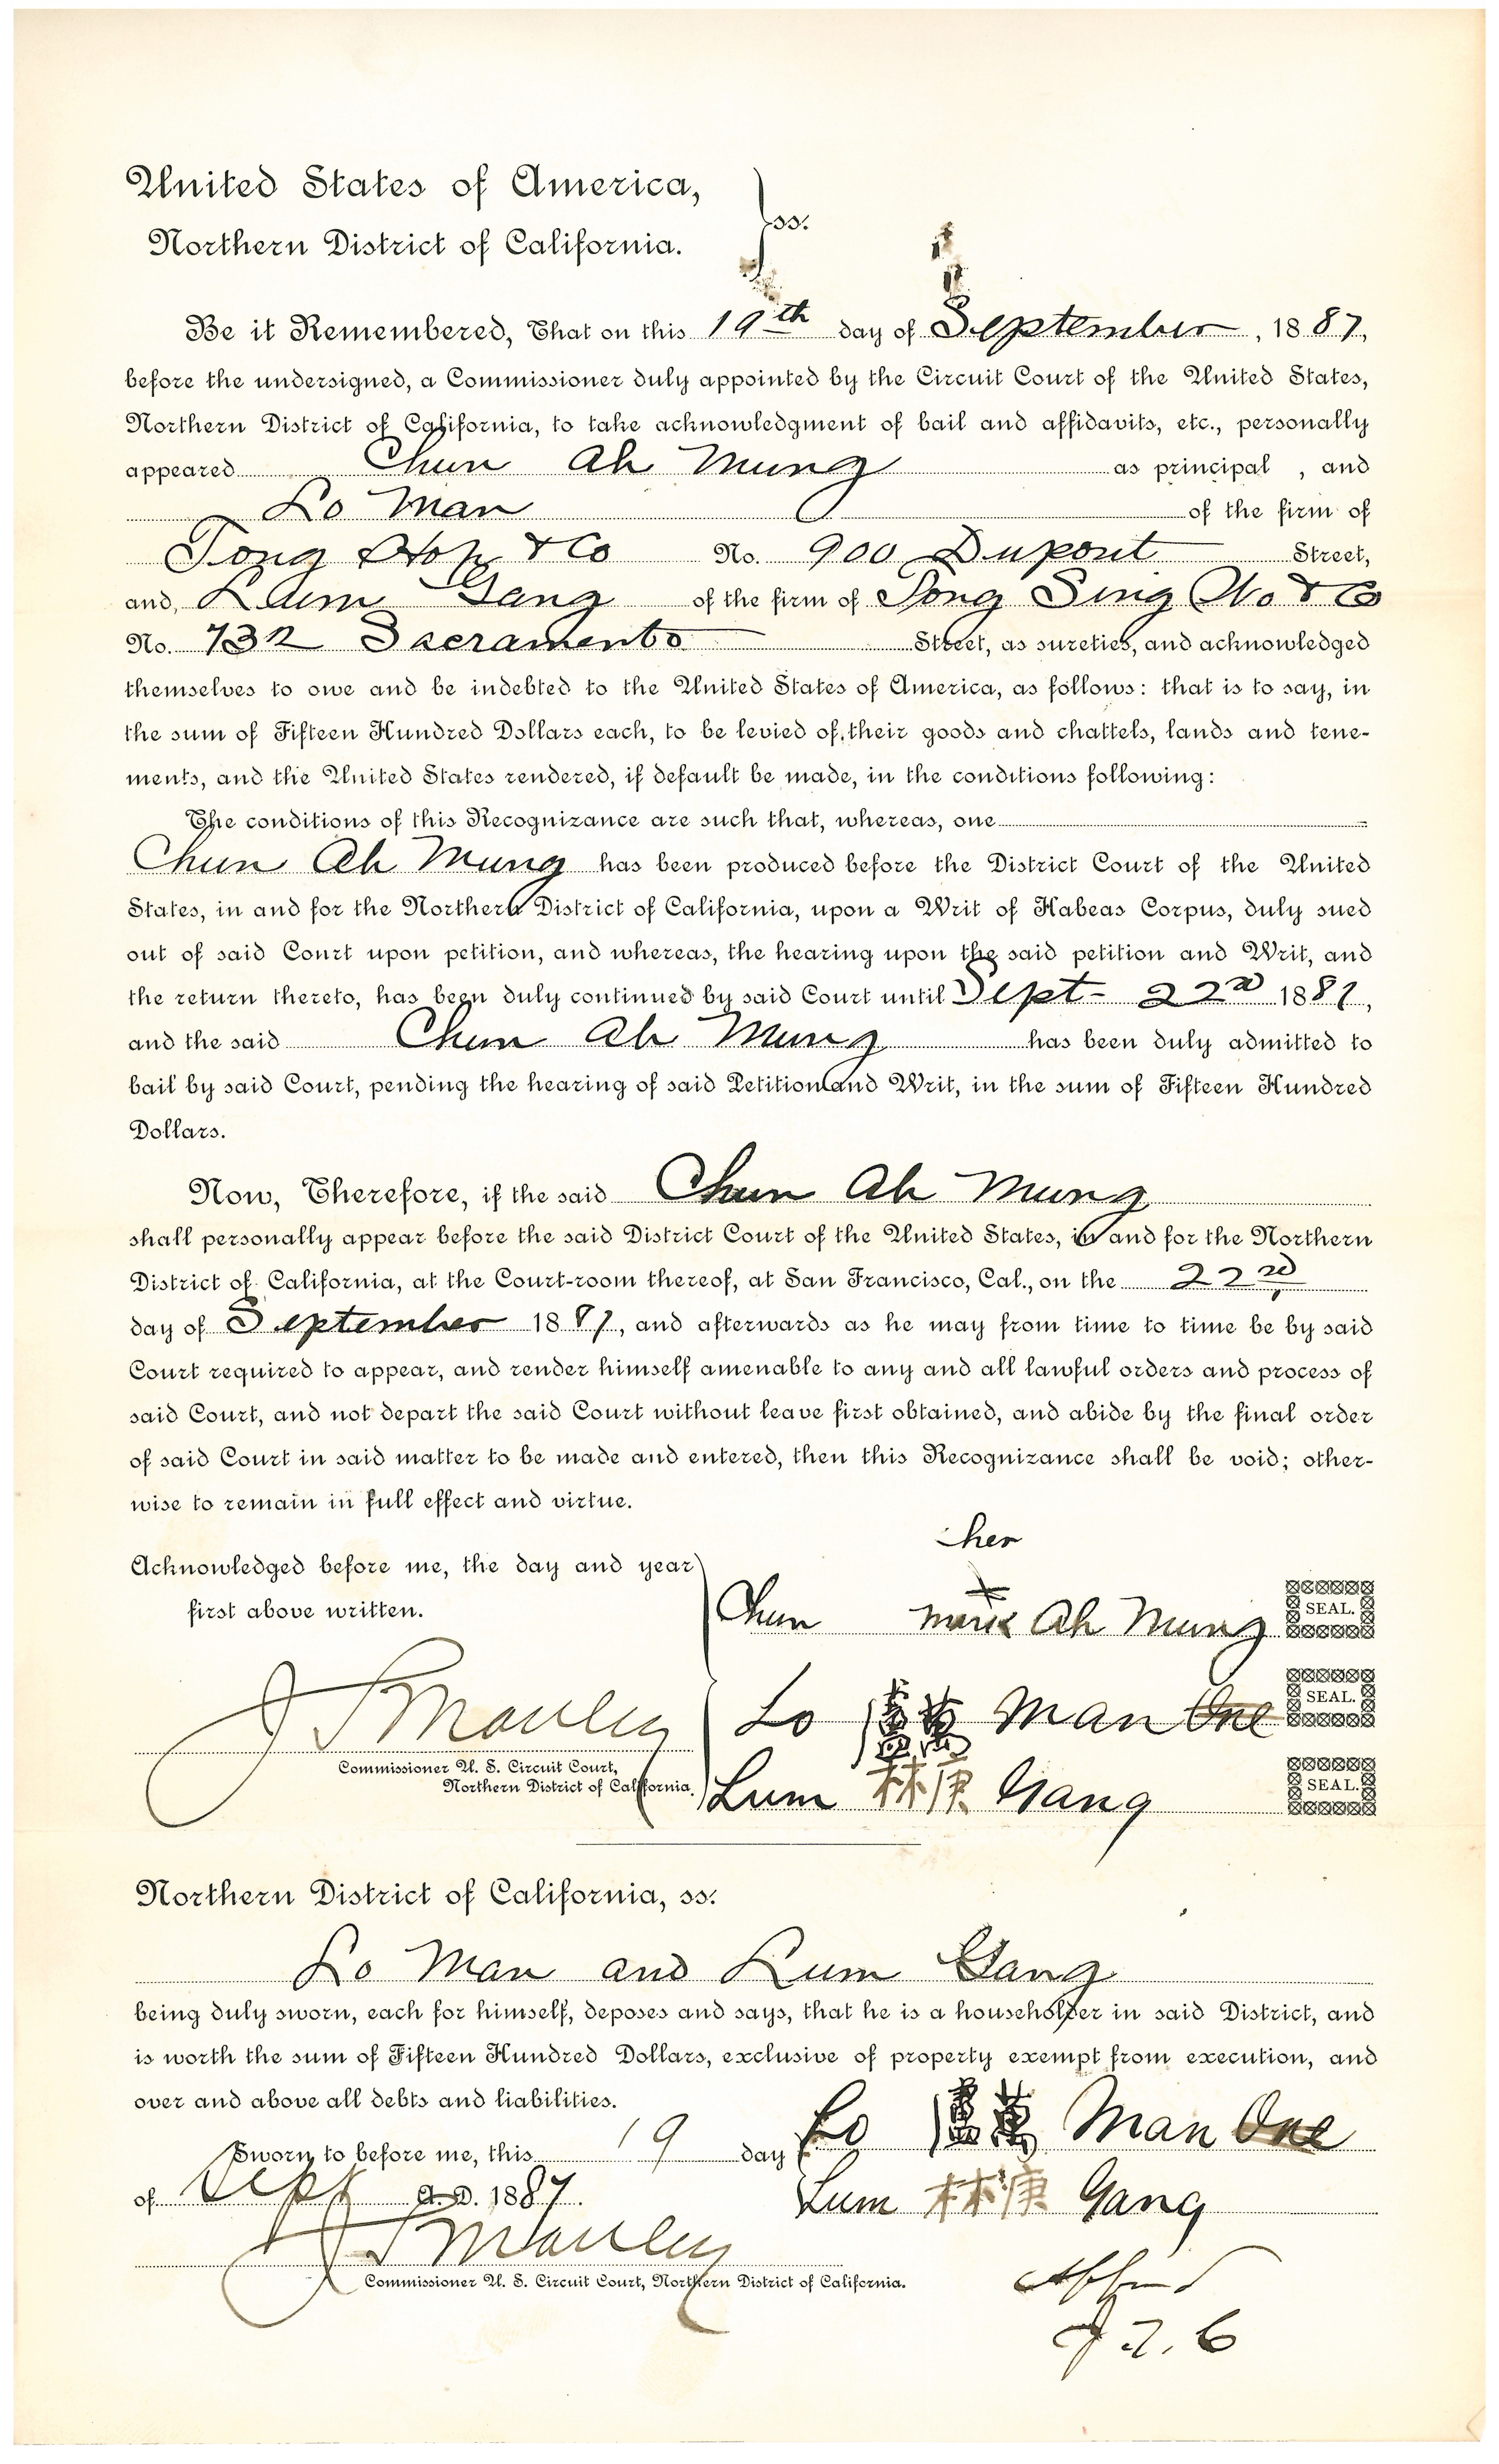 United States of America,
Northern District of California.
ss.
Be it Remembered, That on this 19th day of September, 1887,
before the undersigned, a Commissioner duly appointed by the Circuit Court of the United States,
Northern District of California, to take acknowledgment of bail and affidavits, etc., personally
appeared Chun Ah Mung as principal, and
Lo Man of the firm of
Tong Hop & Co No. 900 Dupont Street,
and, Lum Gang of the firm of Tong Sing Wo & Co
No. 732 Sacramento Street, as sureties, and acknowledged
themselves to owe and be indebted to the United States of America, as follows: that is to say, in
the sum of Fifteen Hundred Dollars each, to be levied of their goods and chattels, lands and tene-
ments, and the United States rendered, if default be made, in the conditions following:
The conditions of this Recognizance are such that, whereas, one
Chun Ah Mung has been produced before the District Court of the United
States, in and for the Northern District of California, upon a Writ of Habeas Corpus, duly sued
out of said Court upon petition, and whereas, the hearing upon the said petition and Writ, and
the return thereto, has been duly continued by said Court until Sept- 22nd 1887,
and the said Chun Ah Mung has been duly admitted to
bail by said Court, pending the hearing of said Petition and Writ, in the sum of Fifteen Hundred
Dollars.
Now, Therefore, if the said Chun Ah Mung
shall personally appear before the said District Court of the United States, in and for the Northern
District of California, at the Court-room thereof, at San Francisco, Cal., on the 22nd
day of September 1887, and afterwards as he may from time to time be by said
Court required to appear, and render himself amenable to any and all lawful orders and process of
said Court, and not depart the said Court without leave first obtained, and abide by the final order
of said Court in said matter to be made and entered, then this Recognizance shall be void; other-
wise to remain in full effect and virtue.
Acknowledged before me, the day and year
first above written.
her
Chun mark Ah Mung SEAL.
Lo 盧萬 Man One SEAL.
J S Manley
Commissioner U. S. Circuit Court,
Northern District of California.
Lum 林庚 Gang SEAL.
Northern District of California, ss:
Lo Man and Lum Gang
being duly sworn, each for himself, deposes and says, that he is a householder in said District, and
is worth the sum of Fifteen Hundred Dollars, exclusive of property exempt from execution, and
over and above all debts and liabilities.
Lo 盧萬 Man One
Sworn to before me, this 19 day
of Sept A. D. 1887.
Lum 林庚 Gang
J S Manley
Commissioner U. S. Circuit Court, Northern District of California.